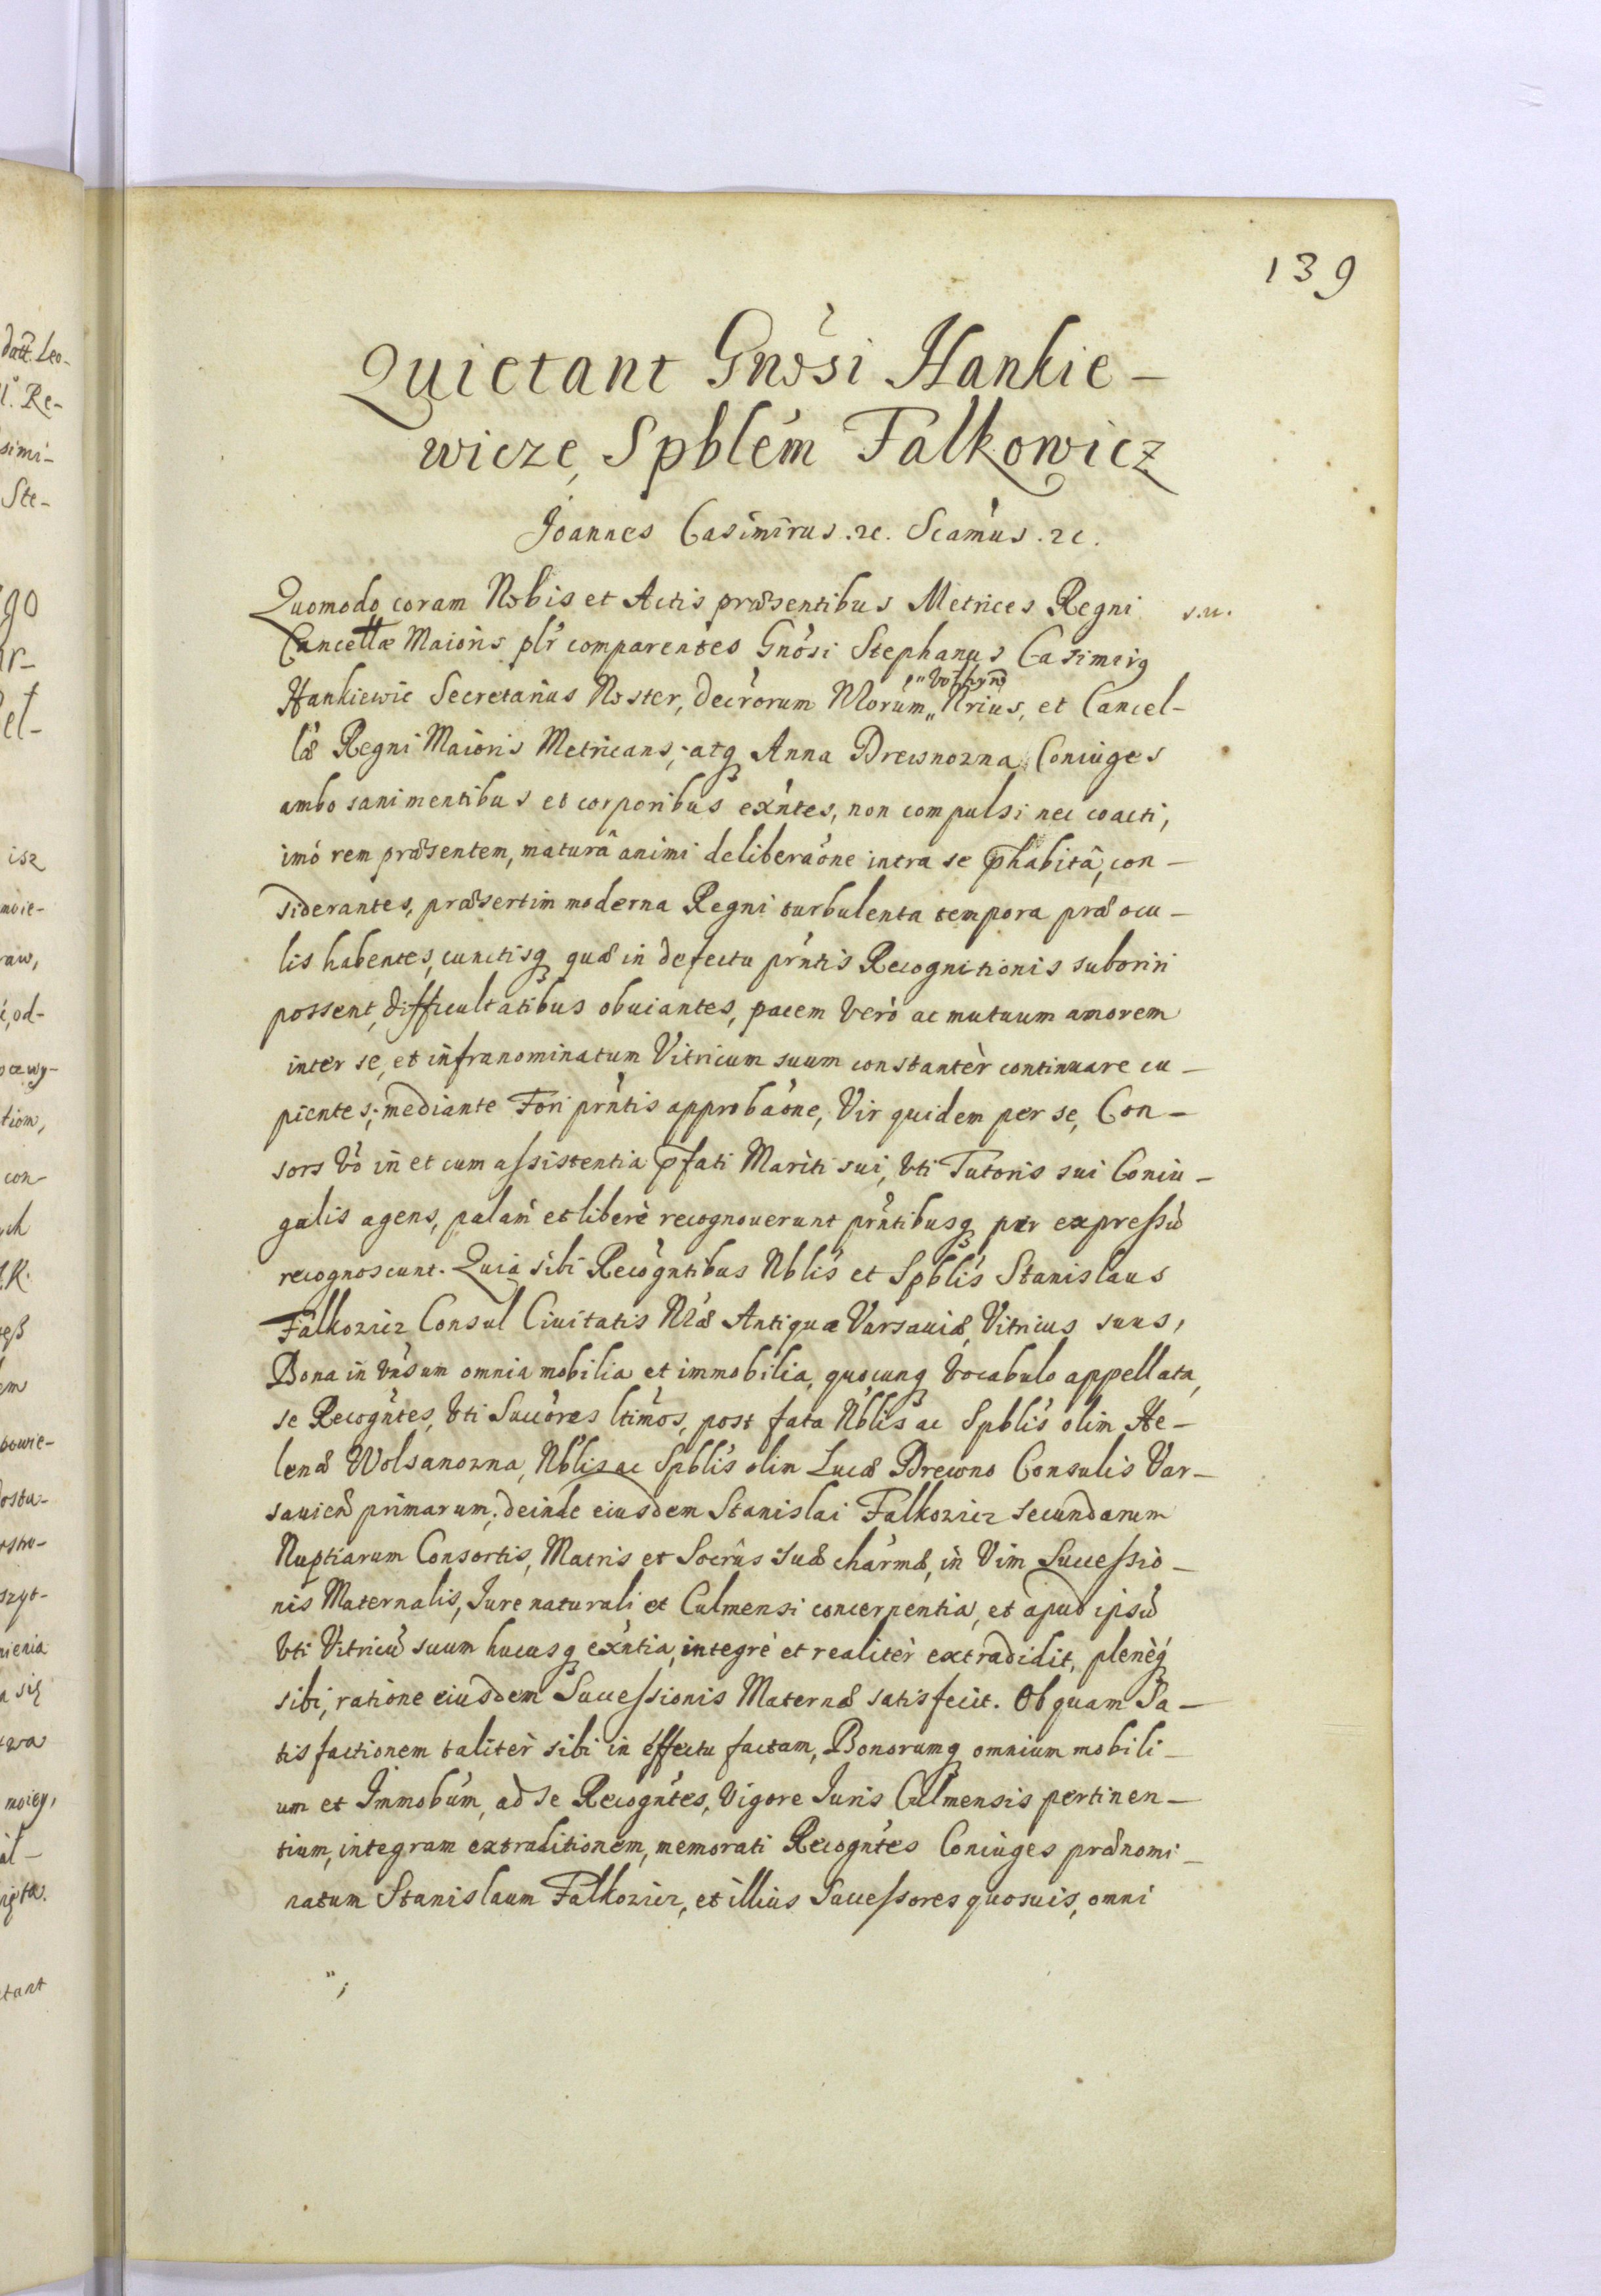 139
Quietant Gnosi Hankie-
wicze, Spblem Falkowicz
Joannes Casimirus .rc. Scamus .rc.
Quomodo coram Nobis et Actis præsentibus Metrices Regni s.n.
Cancellæ Maioris plr comparentes Gnosi Stephanus Casimirg
Hankiewic Secretarius Noster, Decrorum Nrorum „ Nrius, et Cancel-
læ Regni Maioris Metricans, atq Anna Drewnozna Coniuges
ambo sani mentibus et corporibus exntes, non compulsi nec coacti,
imó rem præsentem, maturâ animi deliberaone intra se phabitâ, con-
siderantes, præsertim moderna Regni turbulenta tempora præ ocu-
lis habentes, cunctisq quæ in defectu prntis Recognitionis suboriri
possent, difficultatibus obuiantes, pacem verò ac mutuum amorem
inter se, et infranominatum Vitricum suum constantèr continuare cu-
pientes, mediante Fori prntis approbaone, Vir quidem per se, Con-
sors vo in et cum assistentia pfati Mariti sui, vti Tutoris sui Coniu-
galis agens, palam et liberè recognouerunt prntibusq per expressũ
recognoscunt. Quia sibi Recogntibus Nblis et Spblis Stanislaus
Falkowicz Consul Ciuitatis Nræ Antiquæ Varsauiæ, Vitricus suus,
Bona in vnsum omnia mobilia et immobilia, quocunq vocabulo appellata,
se Recogntes, vti Succores ltimos, post fata Nblis ac Spblis olim He-
lenæ Wolsanozna, Nblis ac Spblis olim Lucæ Drewno Consulis Var-
sauien primarum, deinde eiusdem Stanislai Falkowicz secundarum
Nuptiarum Consortis, Matris et Socrûs suæ charmæ, in Vim Successio-
nis Maternalis, Jure naturali et Culmensi concernentia, et apud ipsũ
vti Vitricũ suum hucusq exntia, integrè et realitèr extradidit, plenèq
sibi, ratione eiusdem Successionis Maternæ satisfecit. Ob quam Sa-
tisfactionem talitèr sibi in effectu factam, Bonorumq omnium mobili-
um et Immobum, ad se Recogntes, Vigore Juris Culmensis pertinen-
tium, integram extraditionem, memorati Recogntes Coniuges prænomi-
natum Stanislaum Falkowicz, et illius Successores quosuis, omni